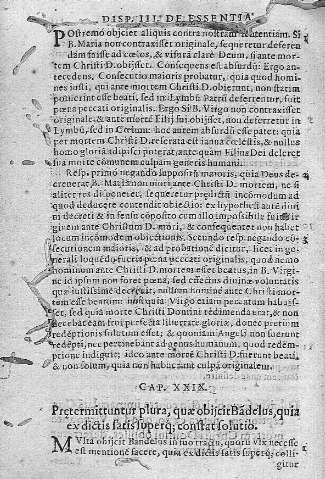 DISP. III. DE ESSENTIA
POstremo objiciet aliquis contra nostram sententiam. Si
B. Maria non contraxisset originale, sequeretur deferen
dam fuisse ad cœlos, & visurā clarè Deum, si ante mor-
tem Christi D. obijsset. Consequens est absurdū: Ergo an-
tecedens. Consecutio maioris probatur, quia quod homi-
nes iusti, qui ante mortem Christi D. obibant, non statim
potirentur esse beati, sed in Lymbū Patrū deferrentur, fuit
pœna peccati originalis. Ergo Si B. Virgo non contraxisset
originale, & ante mortē Filij sui obijsset, non deferretur in
Lymbū, sed in Cœlum: hoc autem absurdū esse patet: quia
per mortem Christi D. reserata est ianua cœlestis, & nullus
homo gloriā adipisci poterat, ante quam Filius Dei deleret
sua morte communem culpam generis humani.
Resp. primo negando suppositū maioris, quia Deus de-
creuerat B. Mariā non mori ante Christi D. mortem, ne si
aliter res disponeret, sequeretur
quod deducere contendit obiectio: ex hypothesi autē diui
ni decreti & in sensu cōposito cum illo impossibile fuit vir
ginem ante Christum D. mori, & consequenter non habet
locum incommodum obiectionis. Secundo resp. negando cō
secutionem maioris, & ad probationē dicitur, licet in ge-
nerali loquēdo fuerit pœna peccati originalis, quod nemo
hominum ante Christi D. mortem esset beatus, in B. Virgi-
ne id ipsum non foret pœna, sed effectus diuinæ voluntatis
esse beatum: non quia Virgo etiam peccatum habuis-
set, sed quia morte Christi Domini redimenda erat, & non
decebat eam frui perfecta libertate gloriæ, donec pretium
redēptionis solutum esset, & quoniam Angeli non fuerunt
redēpti, nec pertinebant ad genus humanum, quod redem-
ptione indiguit; ideo ante mortē Christi D. fuerunt beati,
& non solum, quia non habuerunt culpā originalem.
CAP. XXIX.
Pretermittuntur plura, quæ objicit Bādelus, quia
ex dictis satis superq; constat solutio.
MVlta objicit Bandelus in suo tractu, quorū vix necesse
est mentionē facere, quia ex dictis satis superq; colli-
gitur